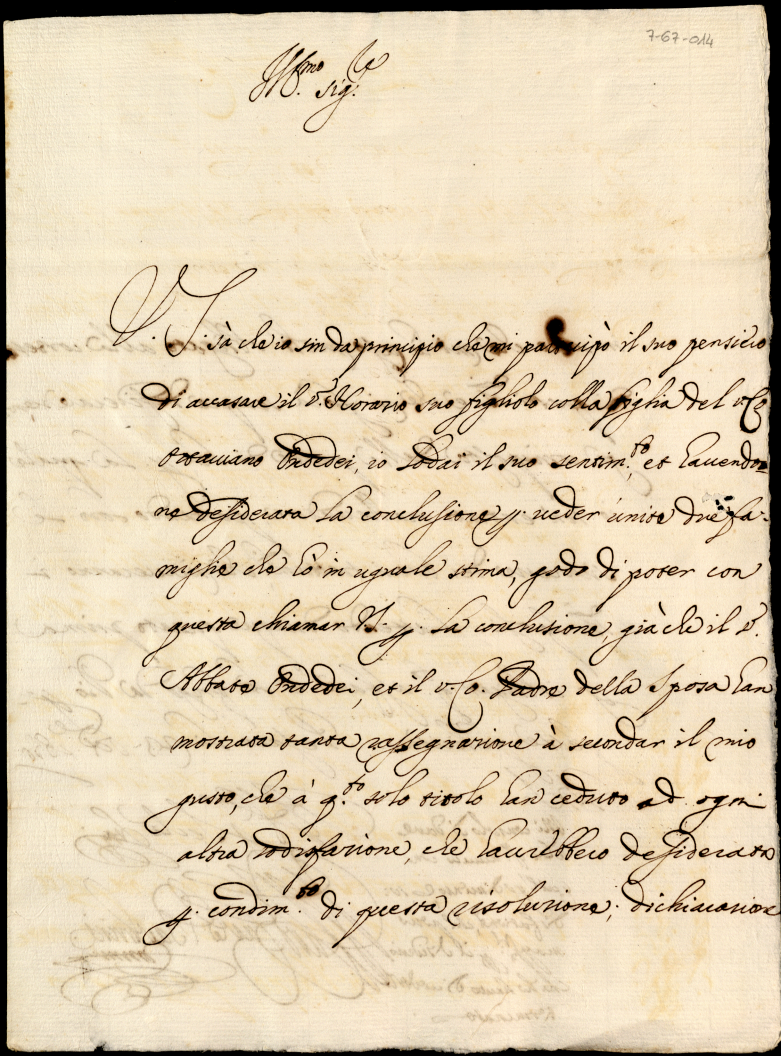 7-67-014
Ill.mo Sig.re
V. S. sà che io sin da principio che mi partecipò il suo pensiero
di accasare il S. Horatio suo figliolo colla figlia del S. Co.
Ottaviano Ondedei, io lodai il suo sentim.to, et havendo=
ne desiderata la conclusione p. veder unite due fa-
miglie che hò in uguale stima, godo di poter con
questa chiamar V.S. p. la conclusione, già che il S.
Abbate Ondedei, et il S. Co. Padre della Sposa han
mostrata tanta rassegnatione à secondar il mio
gusto, che à q.to solo titolo han ceduto ad ogni
altra sodisfatione, che haurebbero desiderata
p. condim.to di questa risolutione; dichiaratione